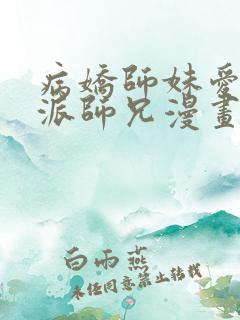 病嬌師妹愛
派師兄漫畫
白雨燕
未任同意禁止转载